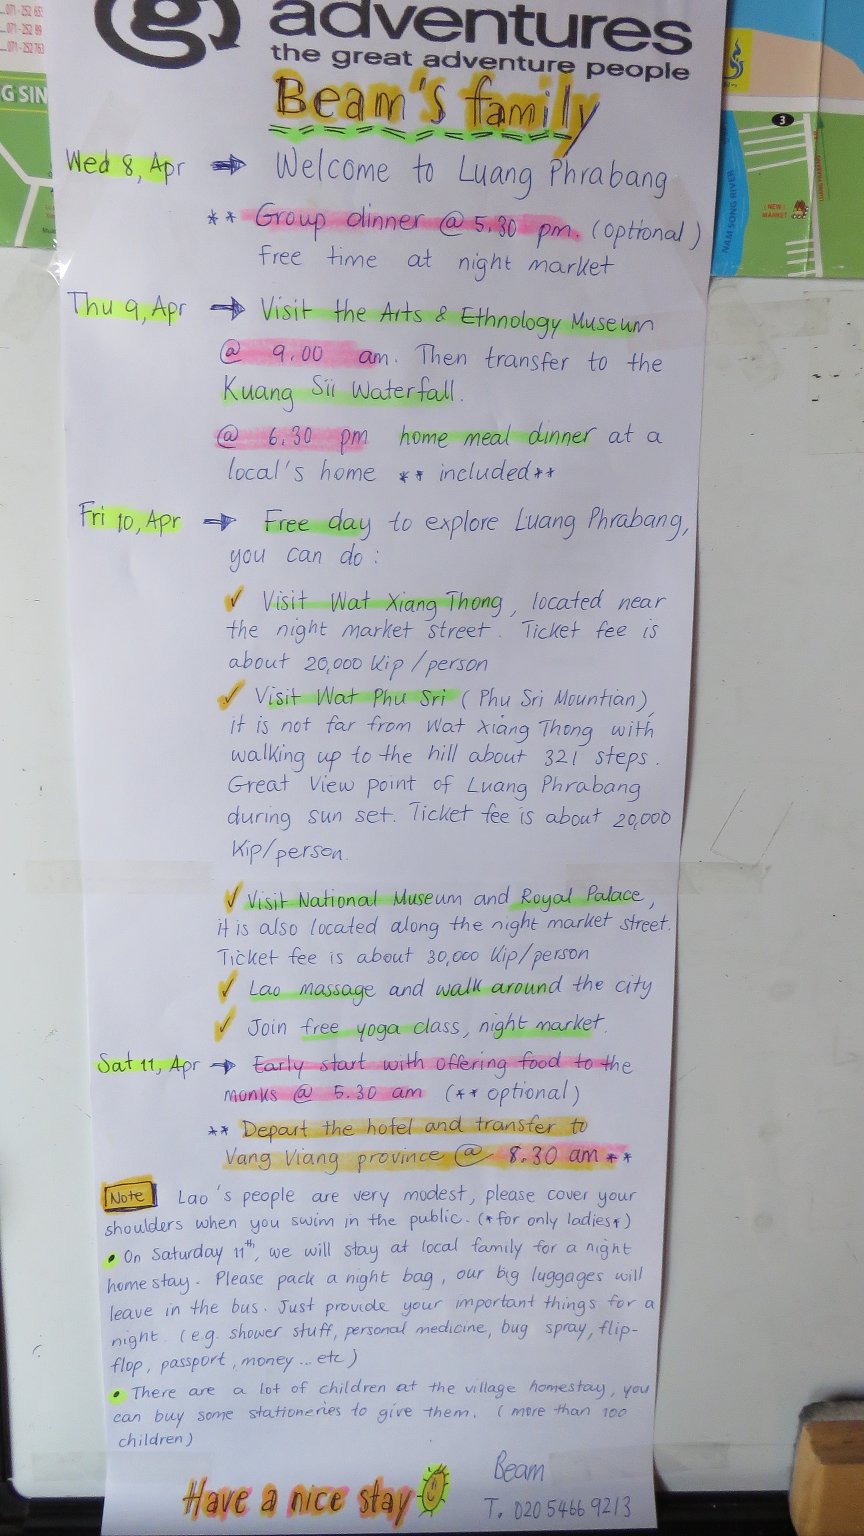 071-252 65
071-252 89
071-252 763
G SIN
g adventures
the great adventure people
Beam's family
Wed 8, Apr → Welcome to Luang Phrabang
** Group dinner @ 5.30 pm. (optional)
free time at night market
Thu 9, Apr → Visit the Arts & Ethnology Museum
@ 9.00 am. Then transfer to the
Kuang Sii Waterfall.
@ 6.30 pm home meal dinner at a
local's home ** included**
Fri 10, Apr → Free day to explore Luang Phrabang,
you can do :
✓ Visit Wat Xiang Thong, located near
the night market street. Ticket fee is
about 20,000 Kip /person
✓ Visit Wat Phu Sri ( Phu Sri Mountian),
it is not far from Wat Xiang Thong with
walking up to the hill about 321 steps.
Great View point of Luang Phrabang
during sun set. Ticket fee is about 20,000
Kip/person.
✓ Visit National Museum and Royal Palace,
it is also located along the night market street.
Ticket fee is about 30,000 Kip/person
✓ Lao massage and walk around the city
✓ Join free yoga class, night market.
Sat 11, Apr → Early start with offering food to the
monks @ 5.30 am (** optional)
** Depart the hotel and transfer to
Vang Viang province @ 8.30 am **
Note Lao's people are very modest, please cover your
shoulders when you swim in the public. (*for only ladies*)
• On Saturday 11th, we will stay at local family for a night
home stay. Please pack a night bag, our big luggages will
leave in the bus. Just provide your important things for a
night. (e.g. shower stuff, personal medicine, bug spray, flip-
flop, passport, money ... etc)
• There are a lot of children at the village homestay, you
can buy some stationeries to give them. ( more than 100
children)
Have a nice stay
Beam
T. 020 5466 9213
3
NAM SONG RIVER
(NEW)
MARKET